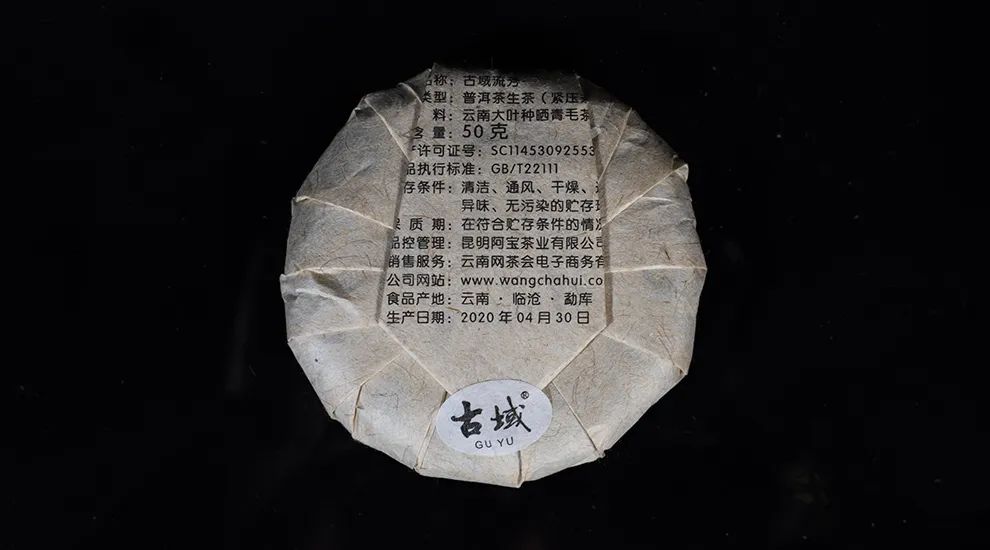 称：古域流芳
类型：普洱茶生茶（紧压
料：云南大叶种晒青毛茶
含量：50克
许可证号：SC11453092553
品执行标准：GB/T22111
存条件：清洁、通风、干燥、
异味、无污染的贮存
质期：在符合贮存条件的情况
品控管理：昆明阿宝茶业有限公司
销售服务：云南网茶会电子商务有
公司网站：www.wangchahui.co
食品产地：云南·临沧·勐库
生产日期：2020年04月30日
古域®
GU YU